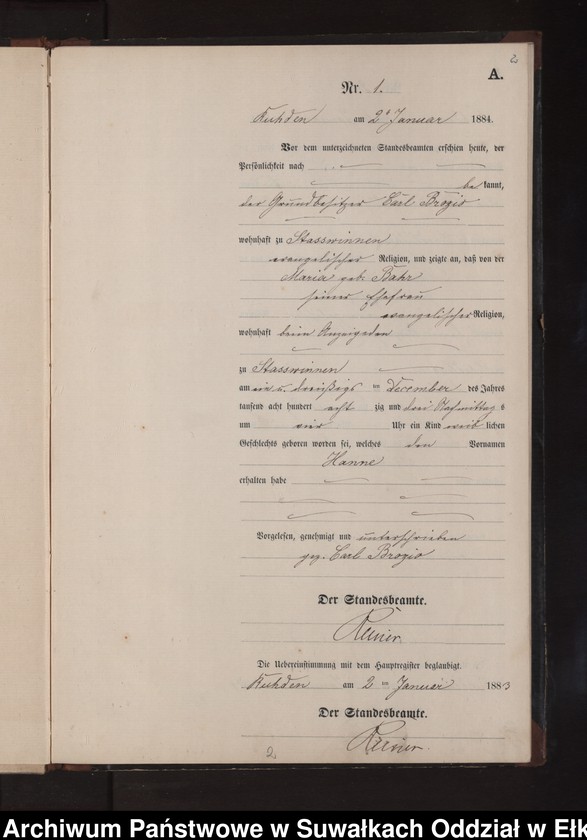 2
A.
Nr. 1.
Kuhden am 2t Januar 1884.
Vor dem unterzeichneten Standesbeamten erschien heute, der
Persönlichkeit nach
be kannt,
der Grundbesitzer Carl Brozio
wohnhaft zu Stasswinnen
evangelischer Religion, und zeigte an, daß von der
Maria geb. Bahr
seiner Ehefrau
evangelischer Religion,
wohnhaft beim Anzeigenden
zu Stasswinnen
am ein u. dreißigs ten December des Jahres
tausend acht hundert acht zig und drei Nachmittag s
um vier Uhr ein Kind weib lichen
Geschlechts geboren worden sei, welches den Vornamen
Hanne
erhalten habe
Vorgelesen, genehmigt und unterschrieben
gez. Carl Brozio
Der Standesbeamte.
Reiner
Die Uebereinstimmung mit dem Hauptregister beglaubigt.
Kuhden am 2 ten Januar 1883
Der Standesbeamte.
Reiner
2
Archiwum Państwowe w Suwałkach Oddział w Ełk